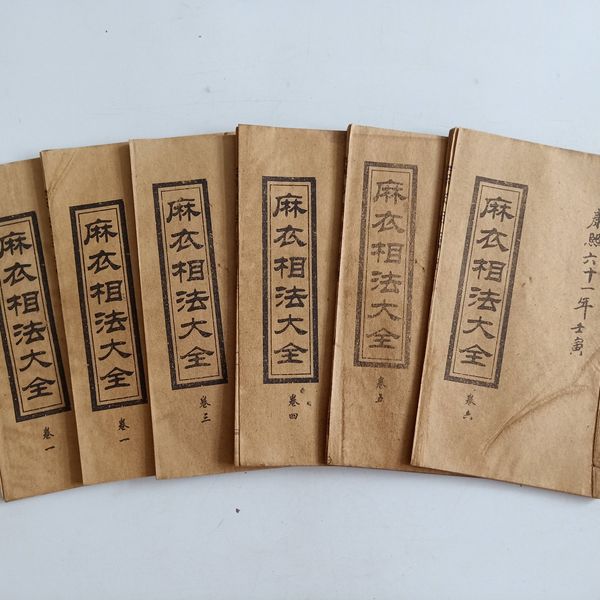 麻衣相法大全
卷一
麻衣相法大全
卷一
麻衣相法大全
卷三
麻衣相法大全
卷四
麻衣相法大全
卷五
麻衣相法大全
卷六
康熙六十一年壬寅